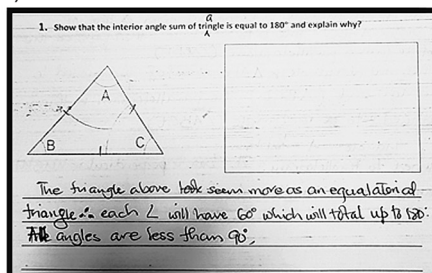 a
1. Show that the interior angle sum of tringle is equal to 180° and explain why?
A
B
C
The triangle above look seem more as an equalaterial
triangle ∴ each ∠ will have 60° which will total up to 180°.
All angles are less than 90°.